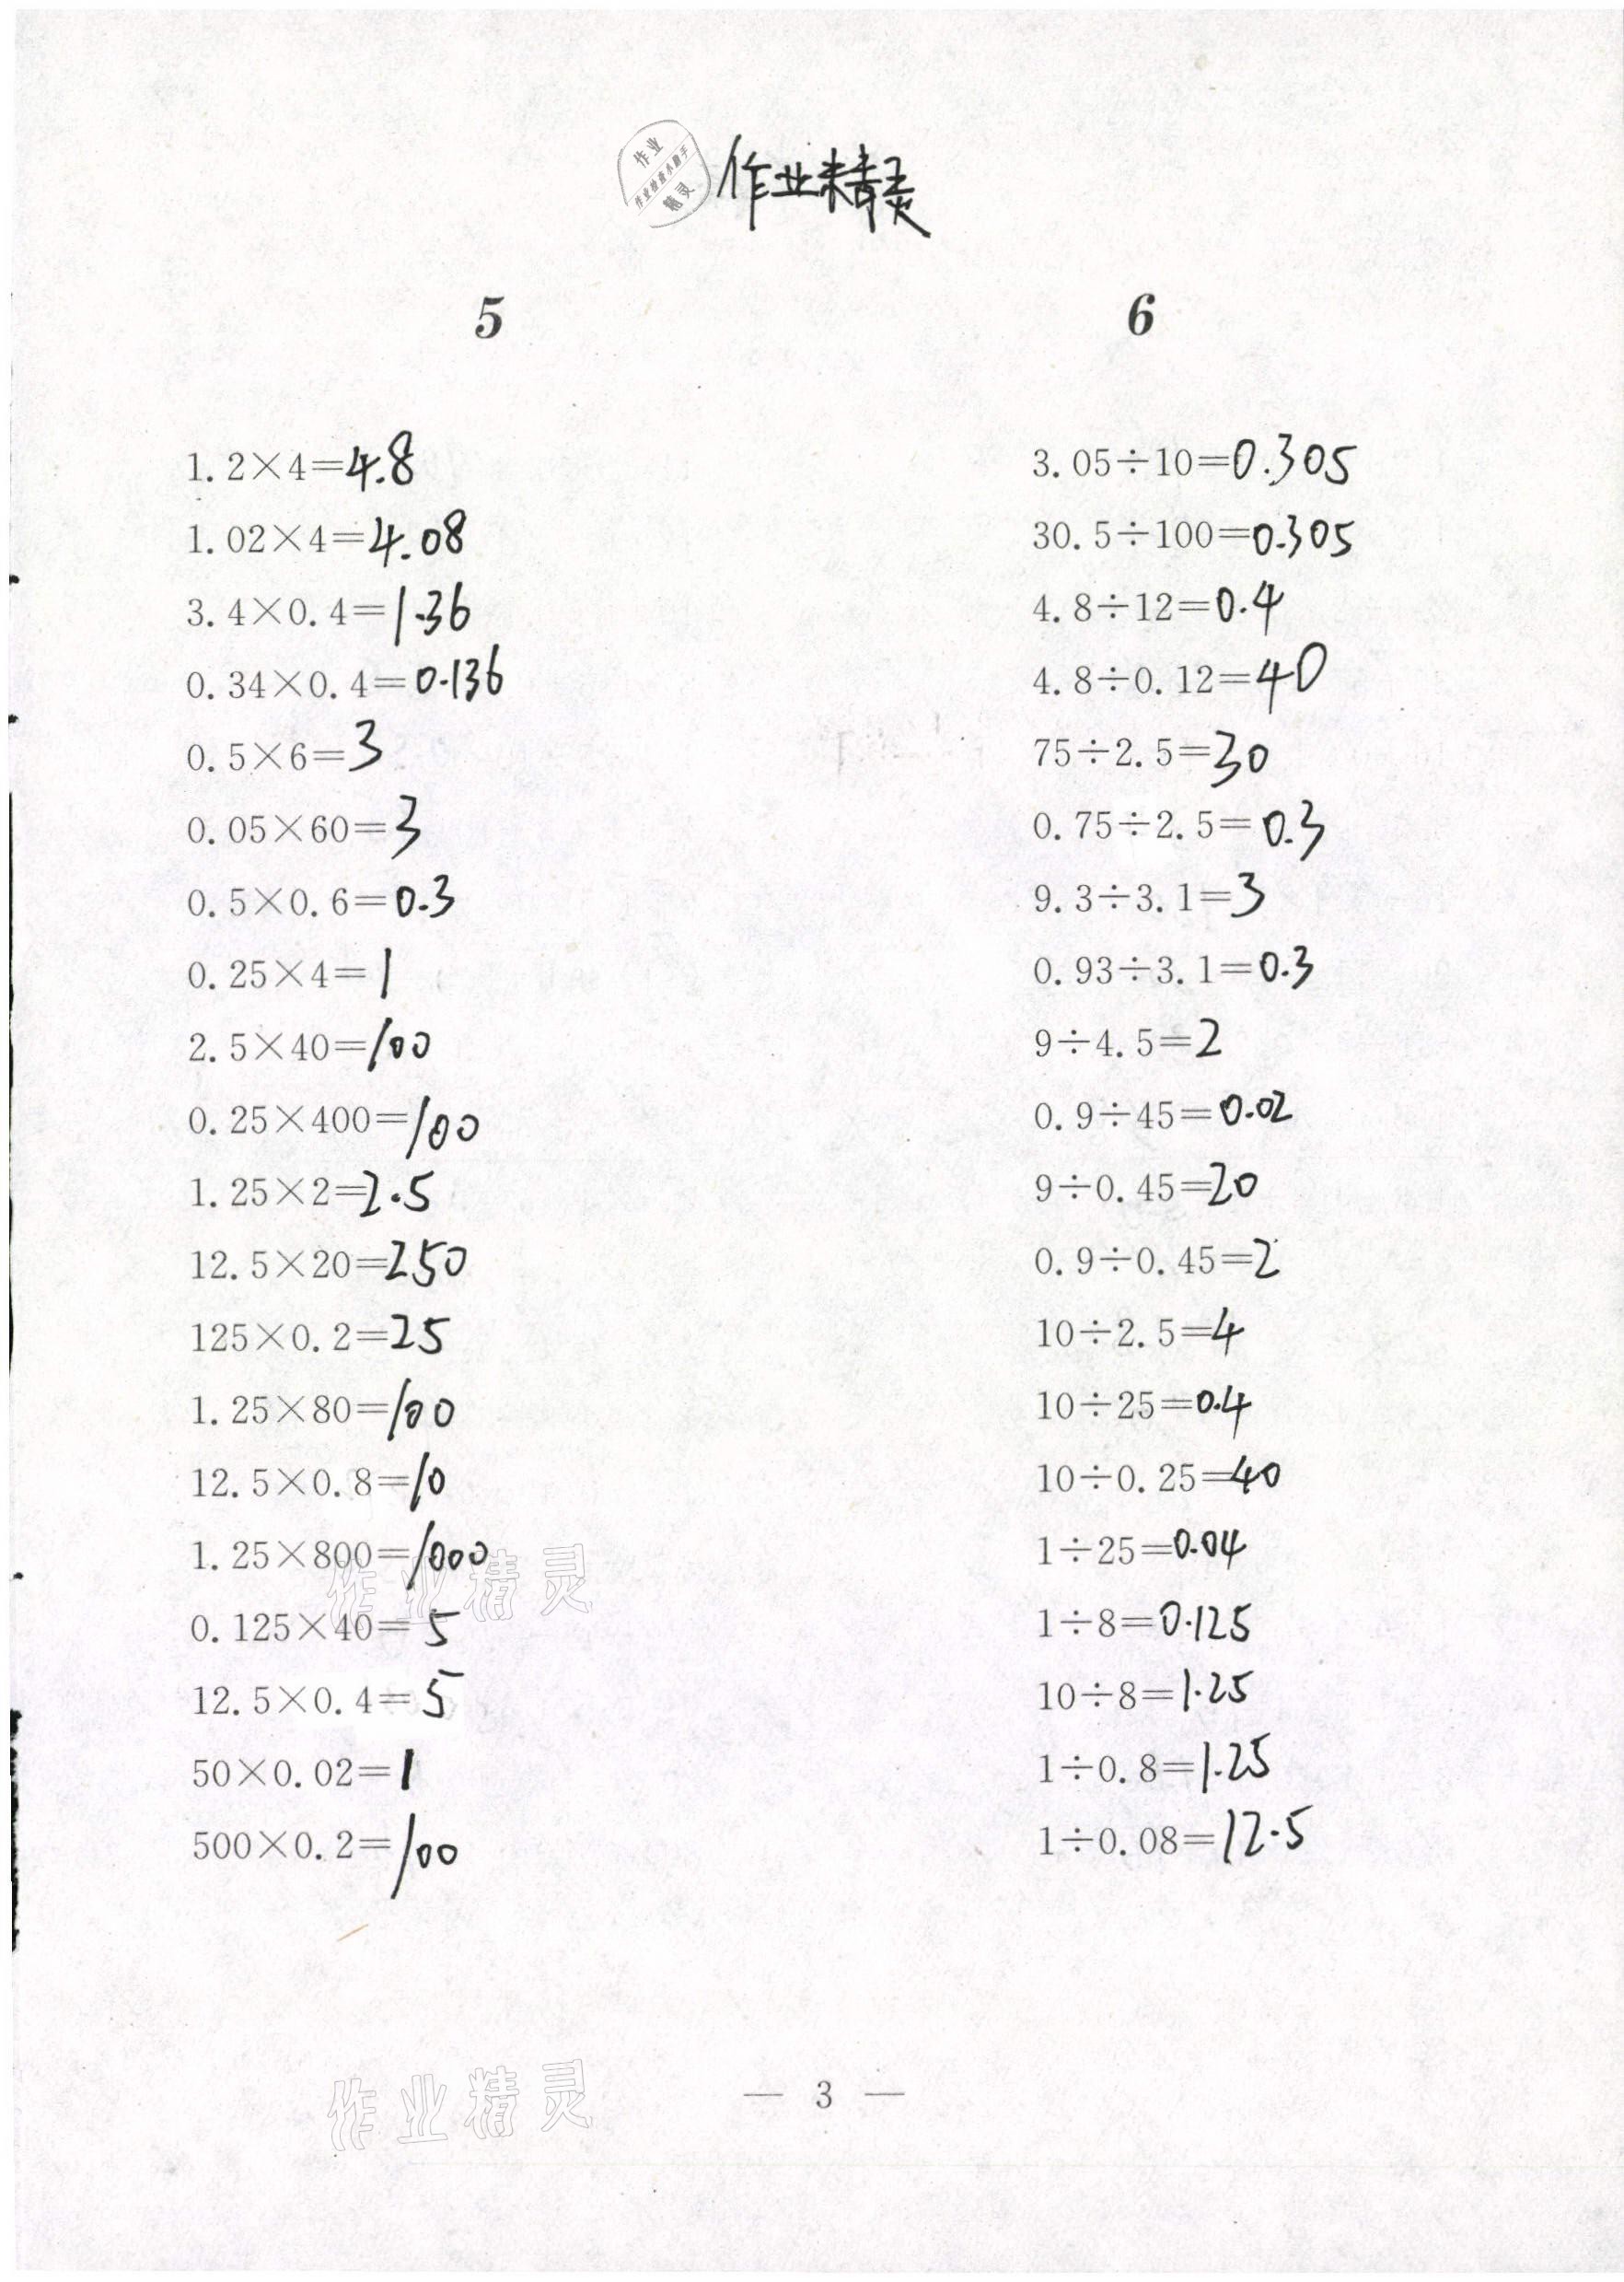 作业
作业检查小助手
精灵
作业精灵
5
1.2×4=4.8
1.02×4=4.08
3.4×0.4=1.36
0.34×0.4=0.136
0.5×6=3
0.05×60=3
0.5×0.6=0.3
0.25×4=1
2.5×40=100
0.25×400=100
1.25×2=2.5
12.5×20=250
125×0.2=25
1.25×80=100
12.5×0.8=10
1.25×800=1000
0.125×40=5
12.5×0.4=5
50×0.02=1
500×0.2=100
6
3.05÷10=0.305
30.5÷100=0.305
4.8÷12=0.4
4.8÷0.12=40
75÷2.5=30
0.75÷2.5=0.3
9.3÷3.1=3
0.93÷3.1=0.3
9÷4.5=2
0.9÷45=0.02
9÷0.45=20
0.9÷0.45=2
10÷2.5=4
10÷25=0.4
10÷0.25=40
1÷25=0.04
1÷8=0.125
10÷8=1.25
1÷0.8=1.25
1÷0.08=12.5
作业精灵
作业精灵
— 3 —